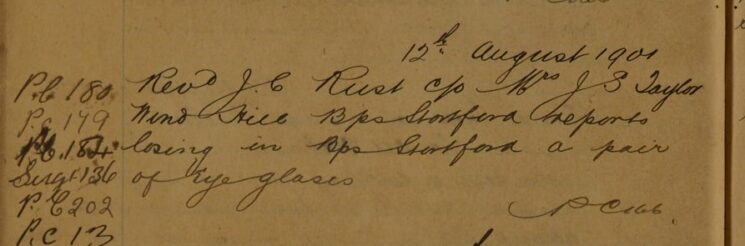 12th August 1901
P.C 180 Revd J. C Rust c/o Mrs J S Taylor
P.c 179 Wind Hill Bps Stortford reports
P.C. 184 losing in Bps Stortford a pair
Sergt 136 of Eye glases
P.C 202
P.C 13